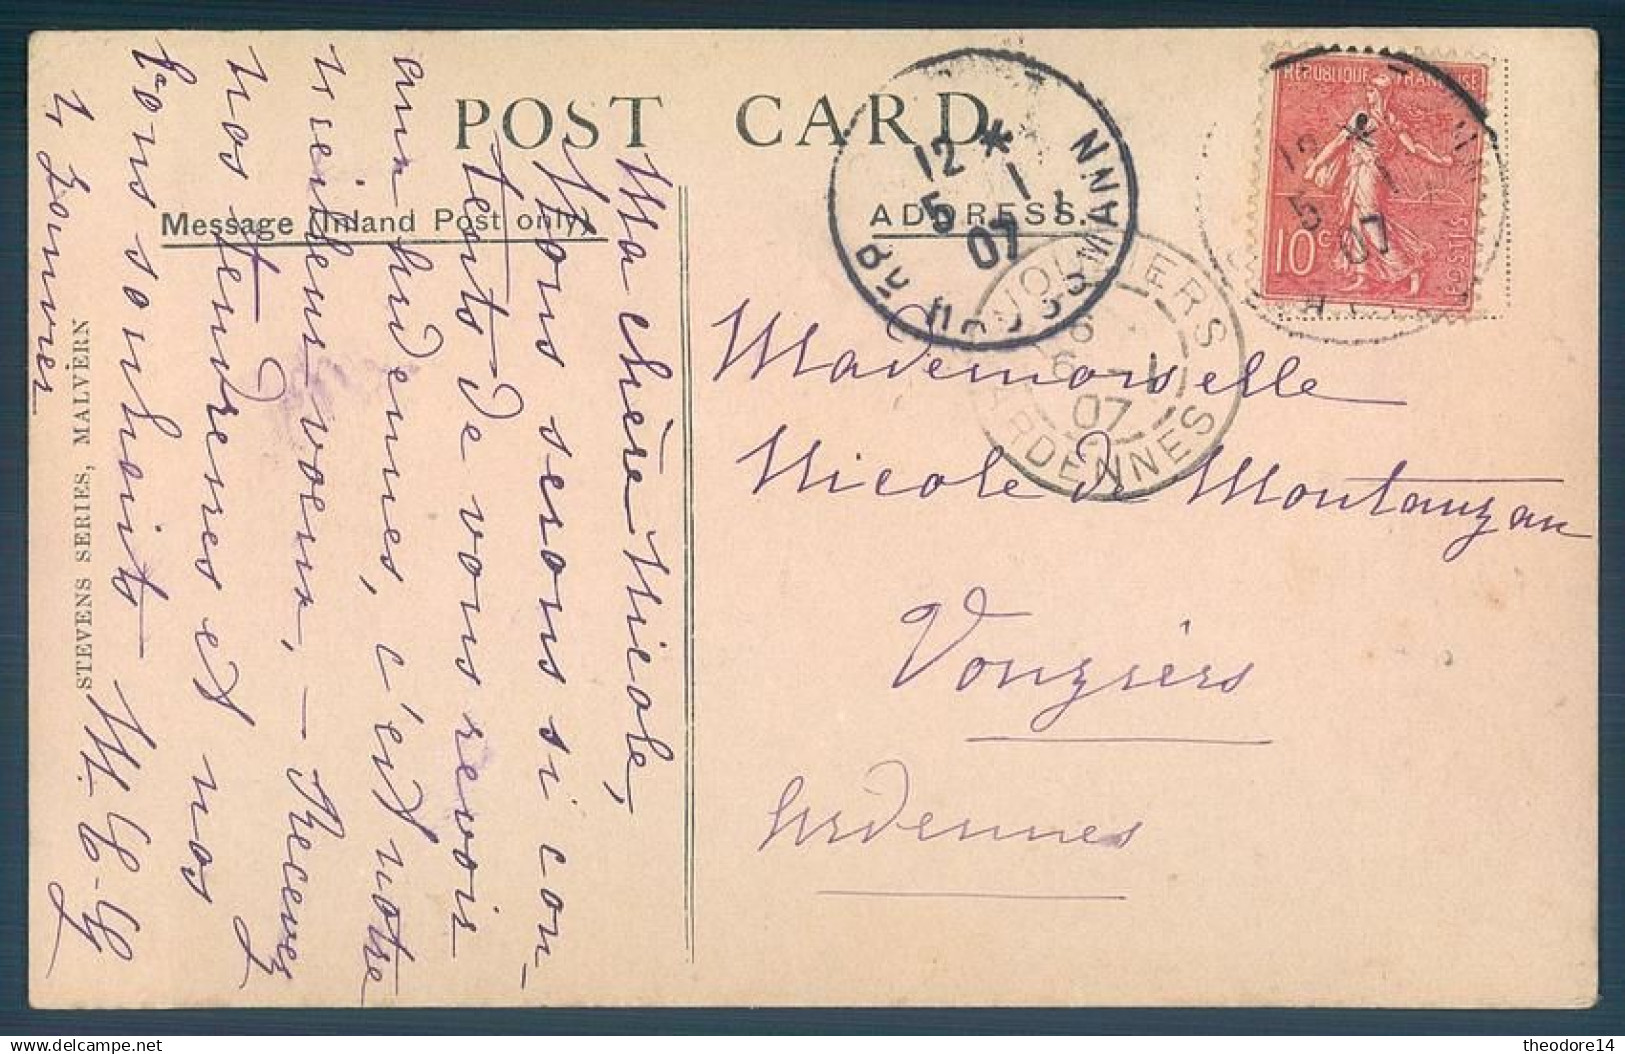 POST CARD
Message Inland Post only
ADDRESS.
STEVENS SERIES, MALVERN
REPUBLIQUE FRANÇAISE
10c
POSTES
12 *
5 - 1
07
Bd HAUSSMANN
12 *
5 1
07
VOUZIERS
6
6 - 1
07
ARDENNES
Ma chère Nicole,
Nous serons si con-
tents de vous revoir
aux Ardennes, c'est notre
meilleur voeux, — Recevez
nos tendresses et nos
bons souhaits
4 Janvier
Mademoiselle
Nicole de Montauzan
Vouziers
Ardennes
theodore14
delcampe.net